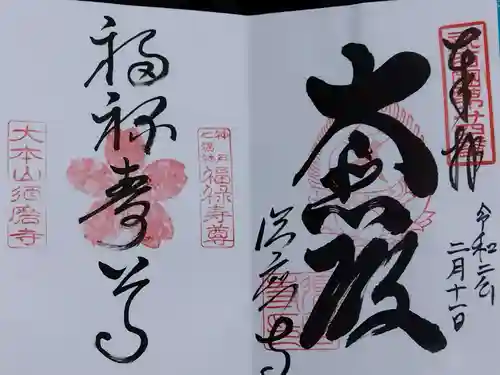 奉拝
令和二年
二月十一日
大悲殿
須磨寺
神戸七福神
福禄寿尊
福禄寿尊
大本山須磨寺